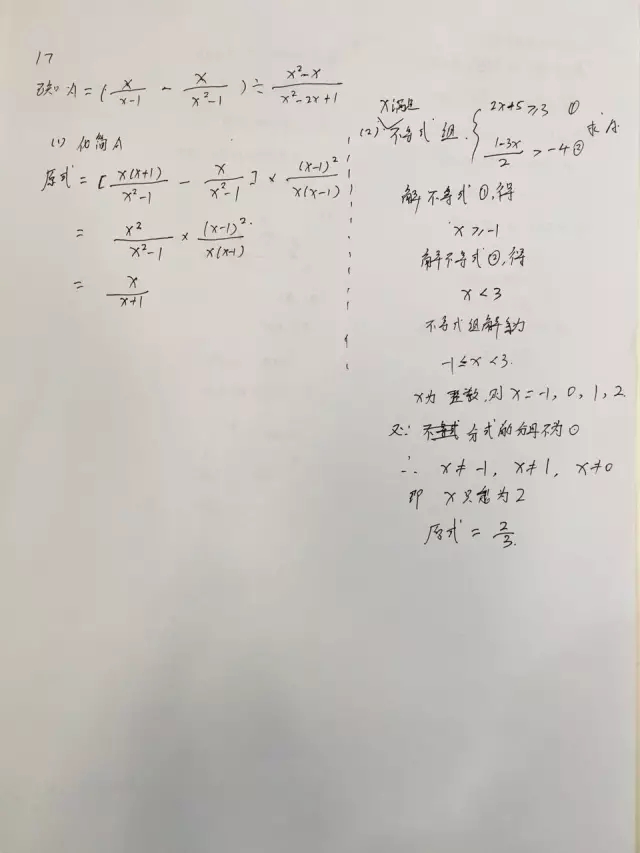 17
已知 A = (x/(x-1) - x/(x²-1)) ÷ (x²-x)/(x²-2x+1)
(1) 化简A
原式 = [x(x+1)/(x²-1) - x/(x²-1)] × (x-1)²/(x(x-1))
= x²/(x²-1) × (x-1)²/(x(x-1))
= x/(x+1)
x满足
(2) 不等式组 { 2x+5≥3 ① 求A
(1-3x)/2 > -4 ②
解不等式①,得
x≥-1
解不等式②,得
x<3
不等式组解集为
-1≤x<3.
x为整数,则x=-1,0,1,2
又∵ 分式的分母不为0
∴ x≠-1, x≠1, x≠0
即 x只能为2
原式 = 2/3.